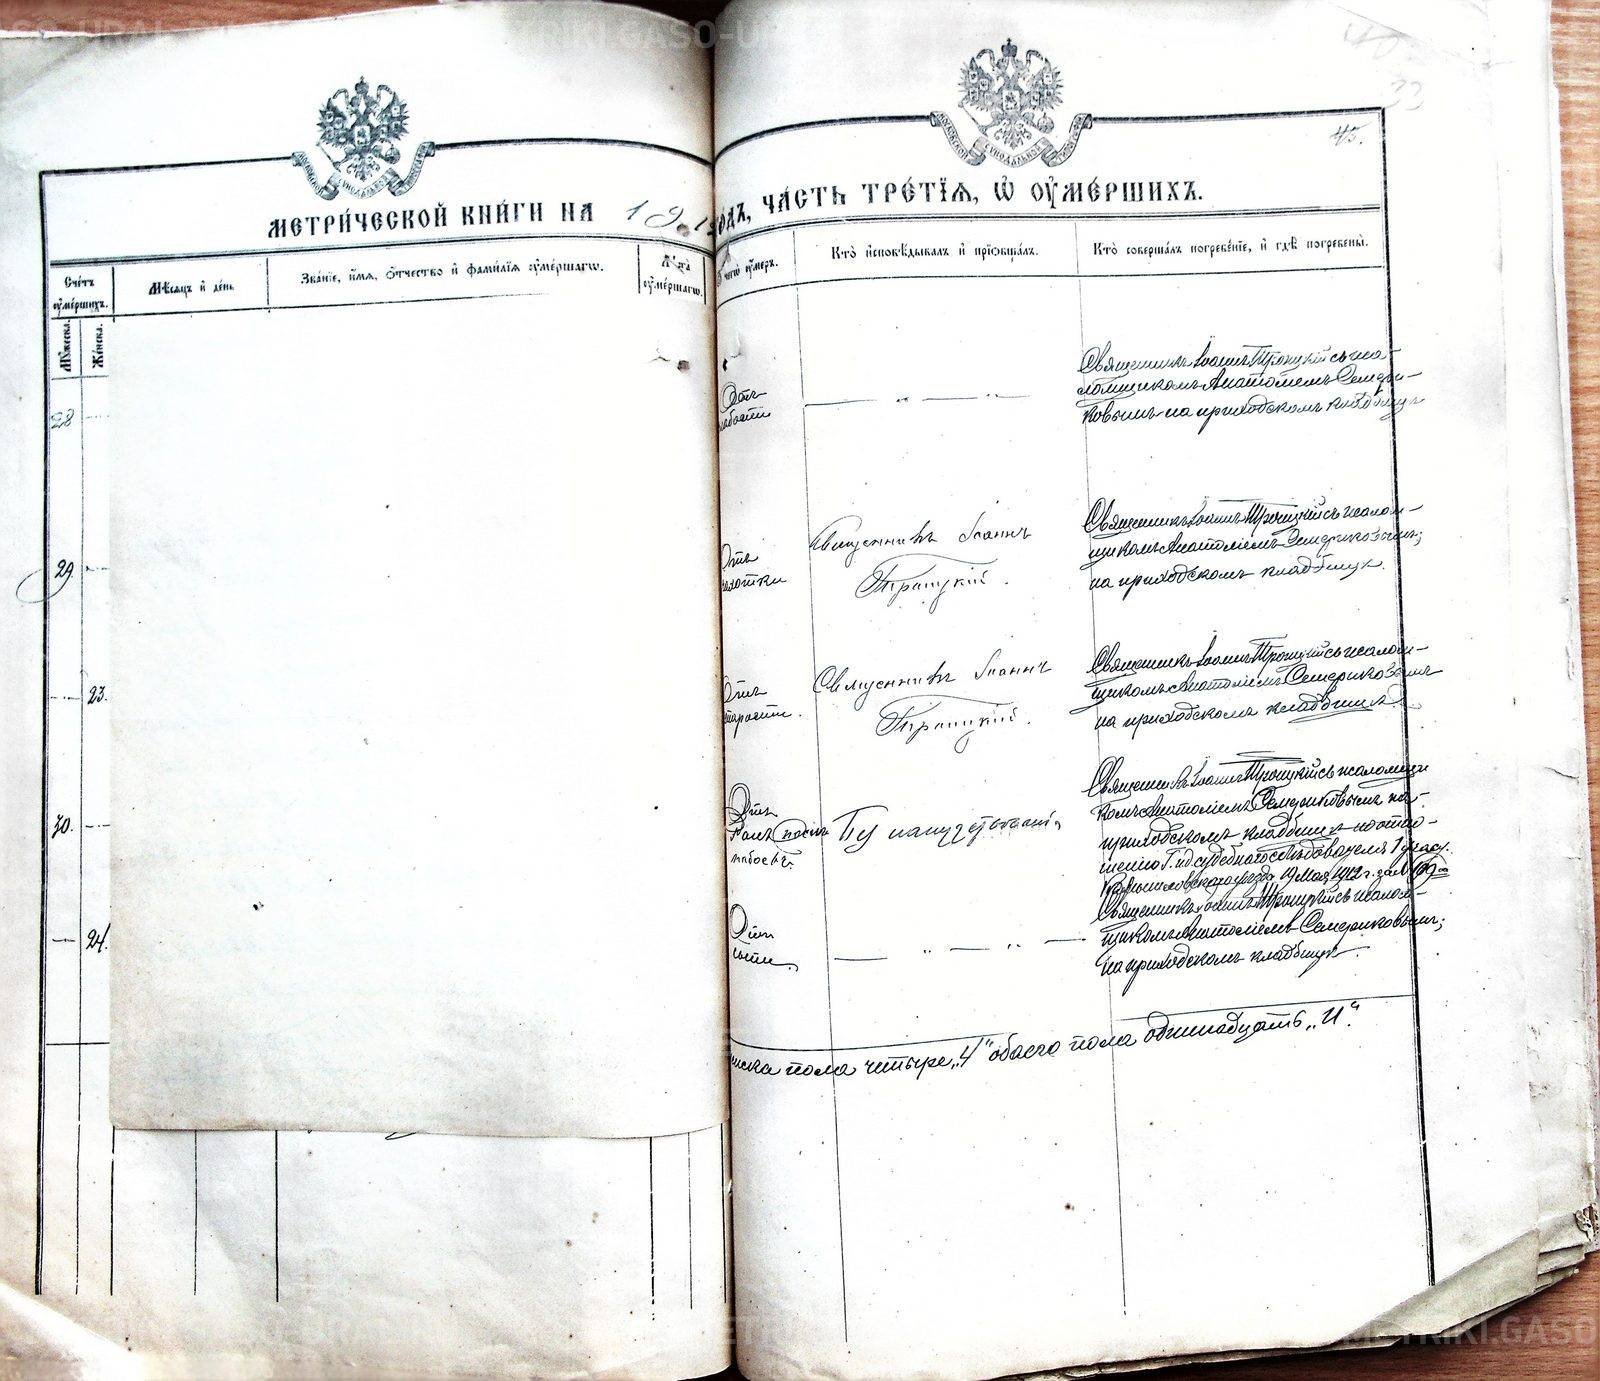 МЕТРИ́ЧЕСКОЙ КНИ́ГИ НА 191
ГОДЪ, ЧА́СТЬ ТРЕ́ТЇѦ, Ѡ҆ ОУ҆МЕ́РШИХЪ.
45.
33
Сче́тъ оу҆ме́ршихъ.
Мѣ́сяцъ и҆ де́нь.
Зва́нїе, и҆́мѧ, ѻ҆́тчество и҆ фами́лїѧ оу҆ме́ршагѡ.
Лѣ́та оу҆ме́ршагѡ.
чегѡ̀ оу҆́меръ.
Кто̀ и҆сповѣ́дывалъ и҆ прїѡбща́лъ.
Кто̀ соверша́лъ погребе́нїе, и҆ гдѣ̀ погребены̀.
Мꙋ́жеска.
Же́нска.
28
Отъ
слабости
Священникъ Іоаннъ Троицкій съ пса-
ломщикомъ Анатоліемъ Семери-
ковымъ на приходскомъ кладбищѣ
29
Отъ
чахотки
Священникъ Іоаннъ
Троицкій.
Священникъ Іоаннъ Троицкій съ псалом-
щикомъ Анатоліемъ Семериковымъ;
на приходскомъ кладбищѣ.
23.
Отъ
старости.
Священникъ Іоаннъ
Троицкій.
Священникъ Іоаннъ Троицкій съ псалом-
щикомъ Анатоліемъ Семериковымъ
на приходскомъ кладбищѣ.
30.
Отъ
Священникъ Іоаннъ Троицкій съ псаломщи
комъ Анатоліемъ Семериковымъ на
приходскомъ кладбищѣ по отно-
шенію Г. судебного слѣдователя 1 участ.
уѣзда 19 Мая 1912 г. за №
24.
Отъ
Священникъ Іоаннъ Троицкій съ псалом-
щикомъ Анатоліемъ Семериковымъ;
на приходскомъ кладбищѣ.
женска пола четыре „4" обоего пола одиннадцать „11".
METRIKI.GASO